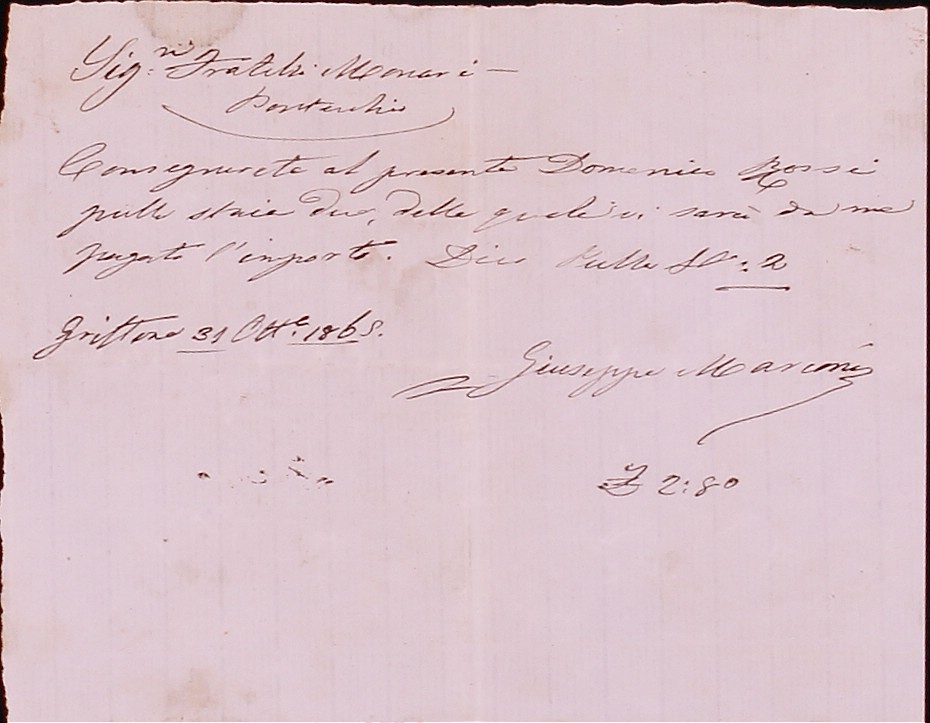 Sig.ri Fratelli Monari —
Pontecchio
Consegnerete al presente Domenico Rossi
pulle staie due, delle quali vi sarà da me
pagato l'importo. Dico Pulle St.a: 2
Griffone 31 Ott.e 1865.
Giuseppe Marconi
£ 2:80